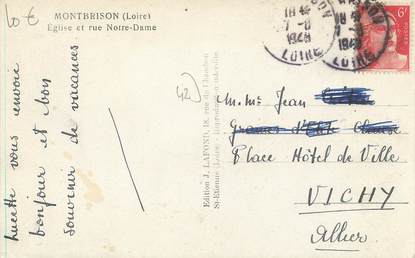 10€
MONTBRISON (Loire)
Église et rue Notre-Dame
Lucette vous envoie
bonjour et bon
souvenir de vacances
42)
Édition J. LAFOND, 18, rue du Chambon
St-Etienne (Loire) Reproduction interdite
18 H
7-8
1948
LOIRE
18 H
1948
LOIRE
6F
M. Mme Jean
Place Hôtel de Ville
VICHY
Allier